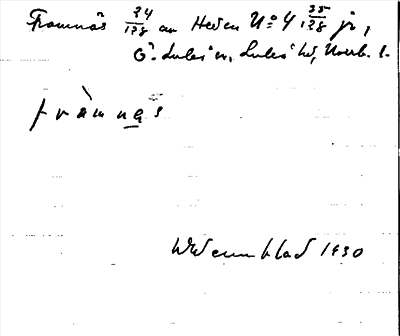 Framnäs 24/128 av Heden No 4 35/128 jr,
Ö. Luleå sn, Luleå hd, Norrb. l.
fràmnas
Widenmblad 1930